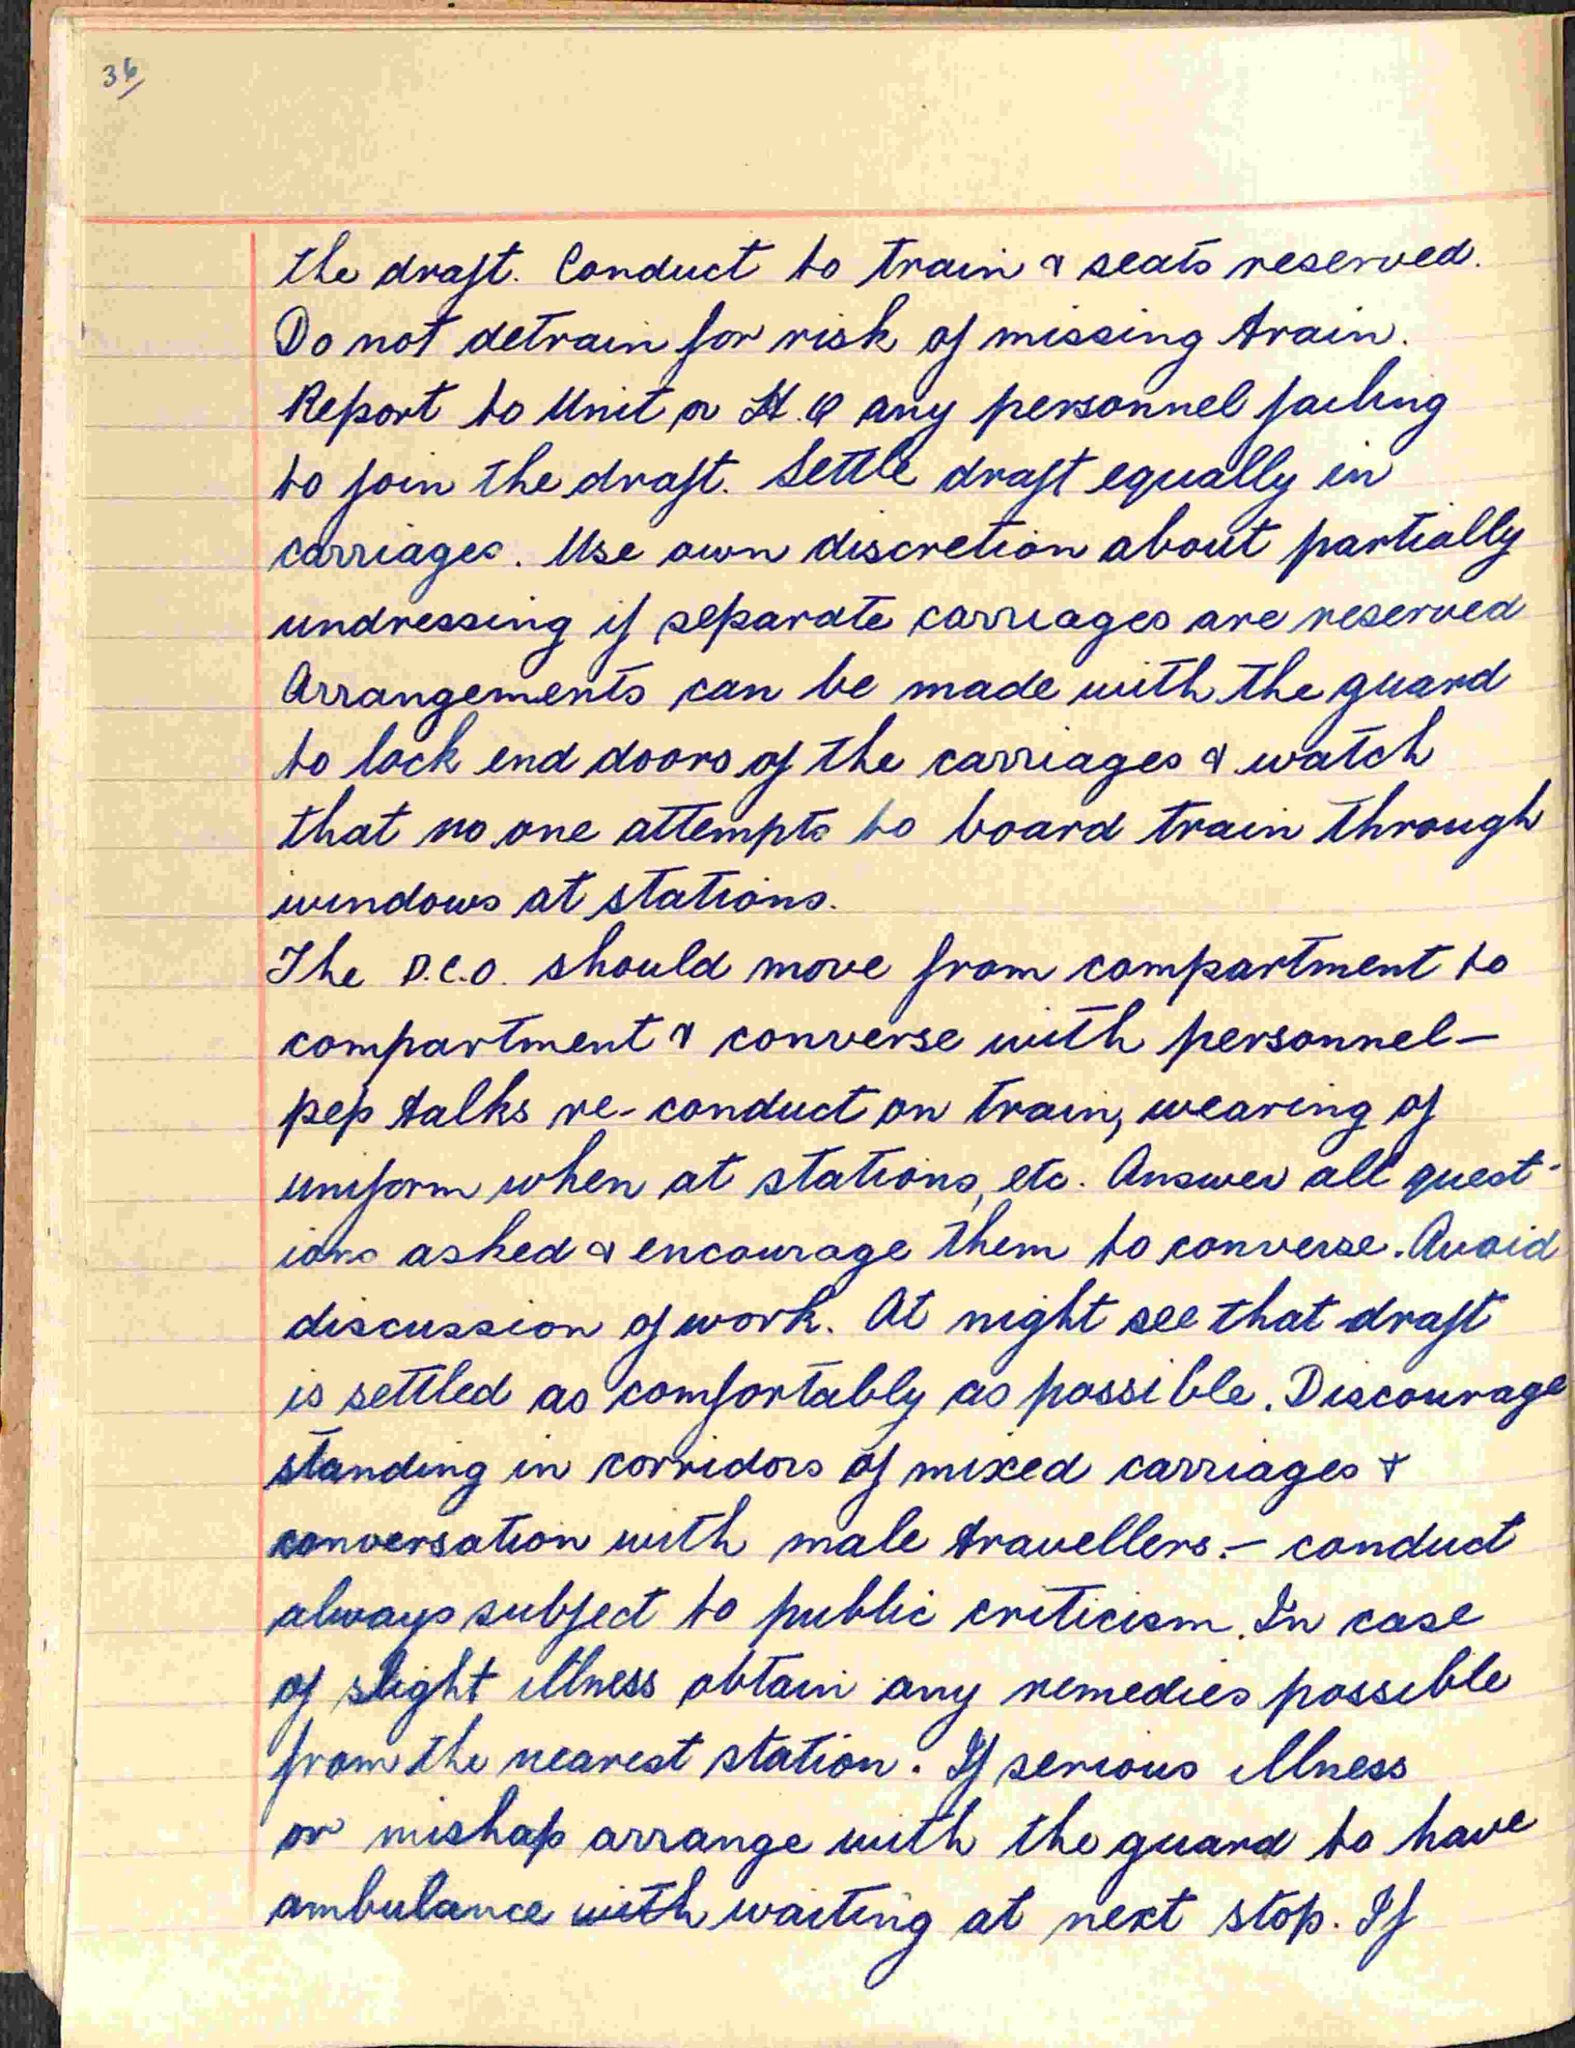 36/
the draft. Conduct to train & seats reserved.
Do not detrain for risk of missing train.
Report to Unit or H.Q any personnel failing
to join the draft. Settle draft equally in
carriages. Use own discretion about partially
undressing if separate carriages are reserved
Arrangements can be made with the guard
to lock end doors of the carriages & watch
that no one attempts to board train through
windows at stations.
The D.C.O. should move from compartment to
compartment & converse with personnel -
pep talks re-conduct on train, wearing of
uniform when at stations, etc. Answer all quest-
ions asked & encourage them to converse. Avoid
discussion of work. At night see that draft
is settled as comfortably as possible. Discourage
standing in corridors of mixed carriages &
conversation with male travellers. - conduct
always subject to public criticism. In case
of slight illness obtain any remedies possible
from the nearest station. If serious illness
or mishap arrange with the guard to have
ambulance with waiting at next stop. If